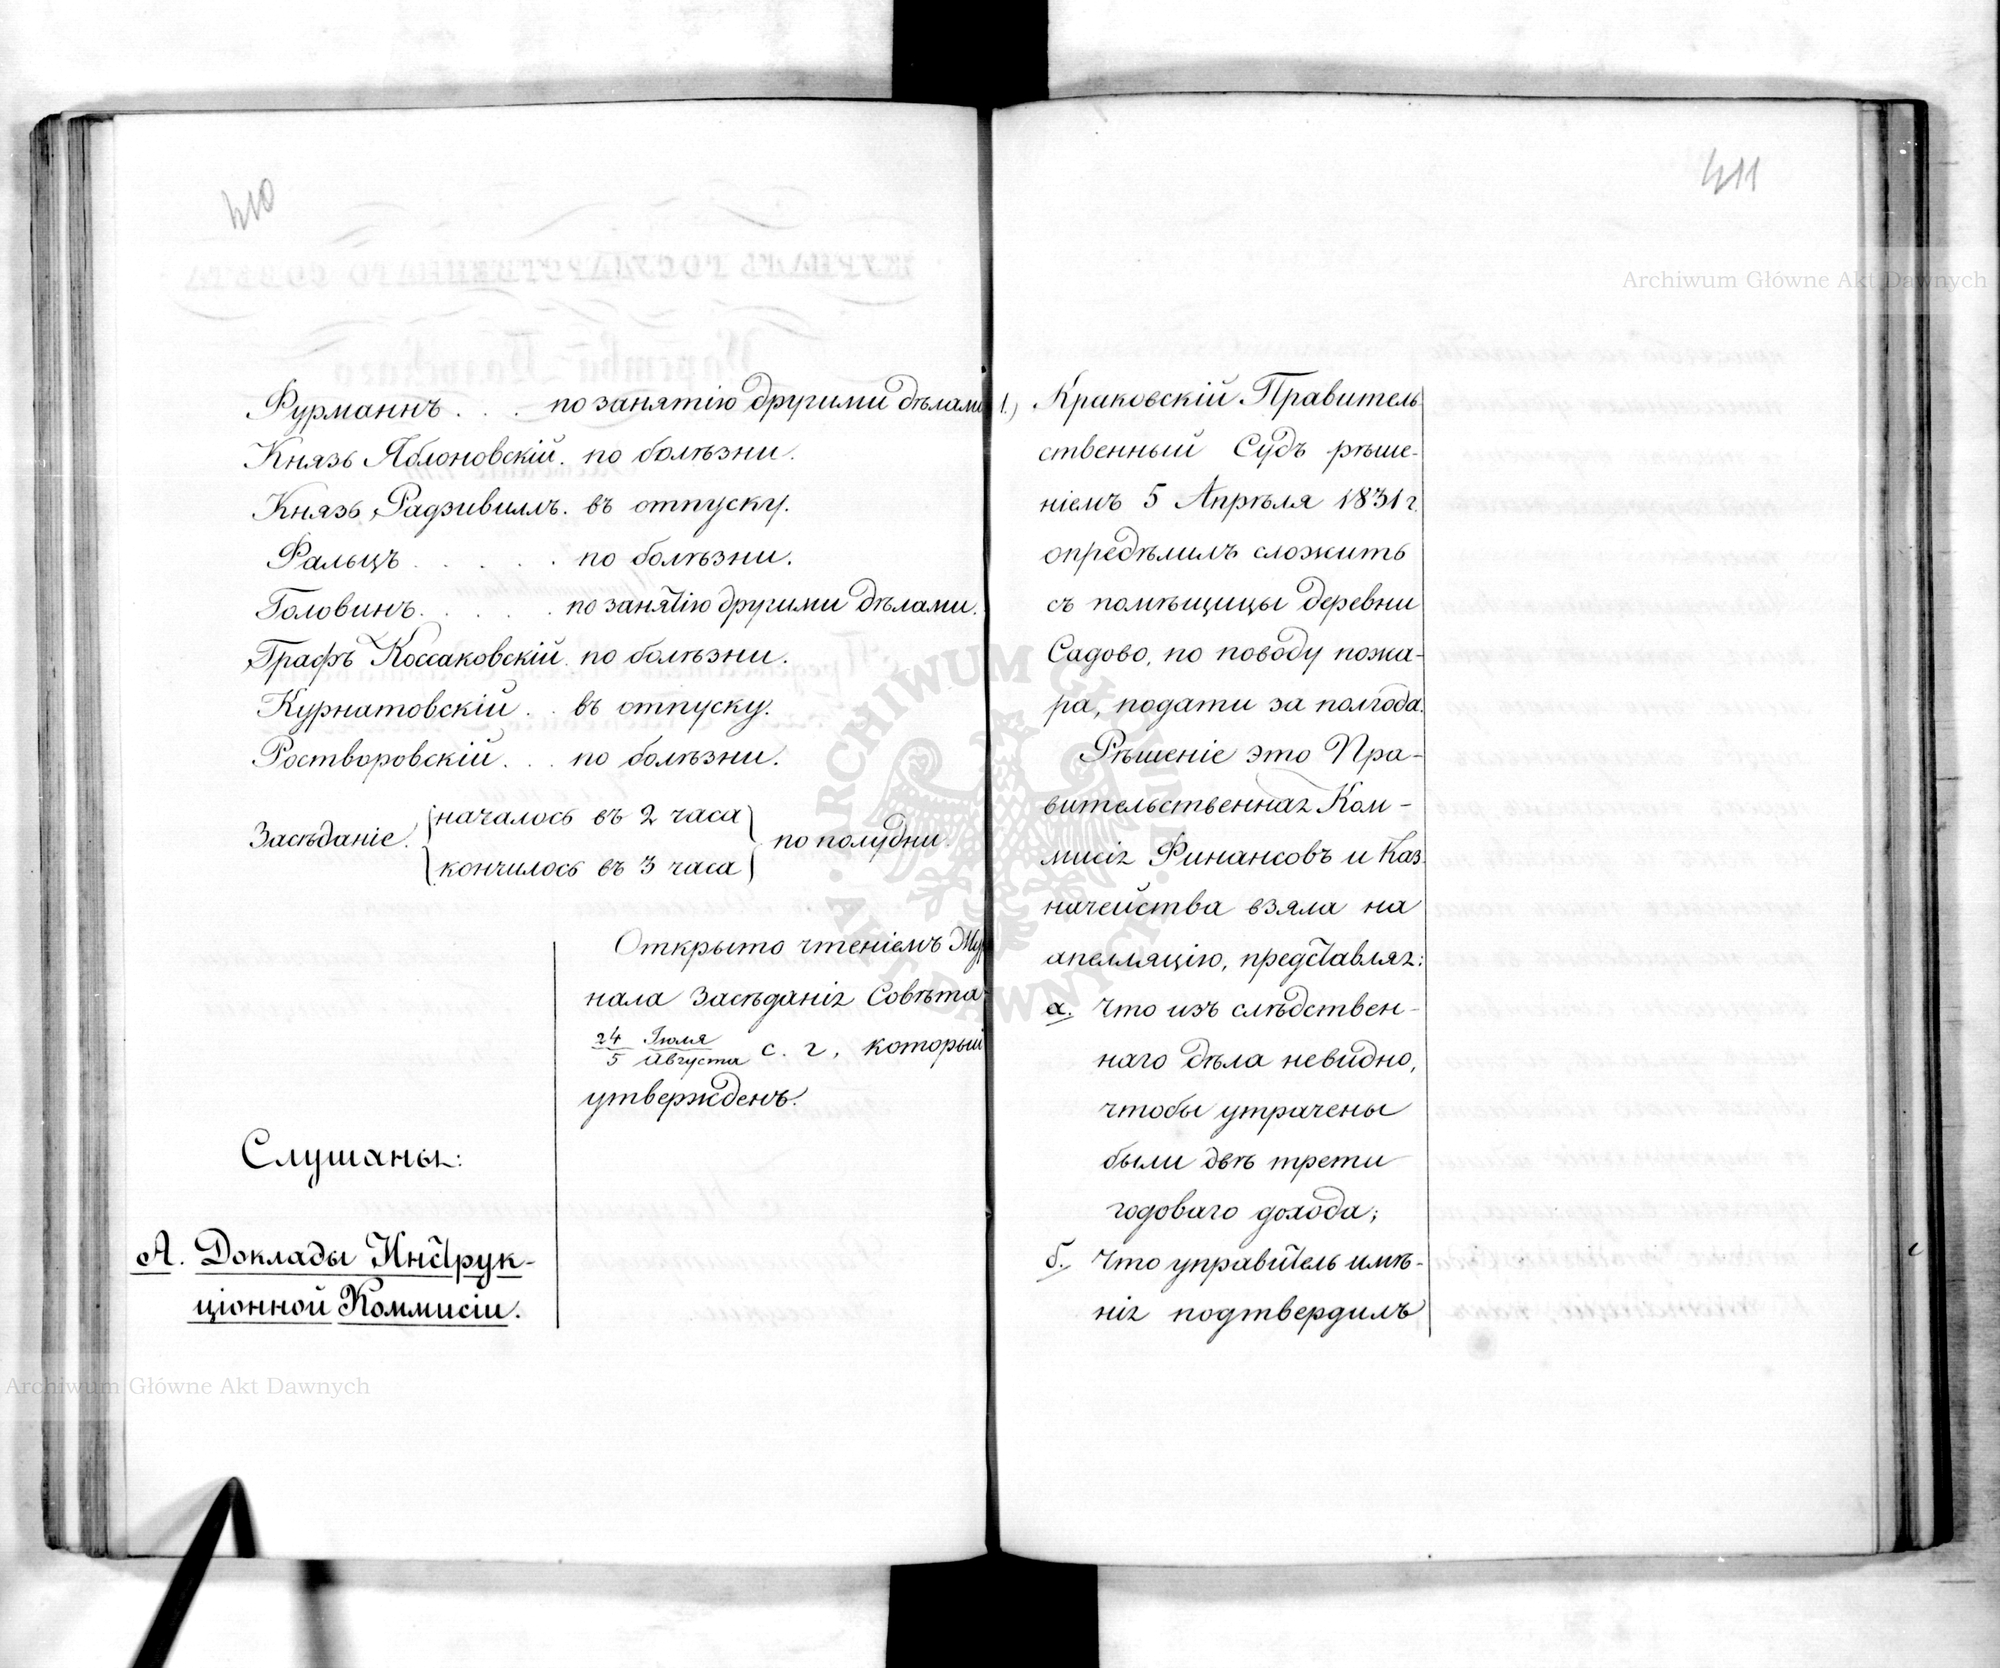 410
Фурманнъ . . . по занятію другими дѣлами
Князь Яблоновскій. по болѣзни.
Князь Радзивиллъ. въ отпуску.
Фальцъ . . . . . по болѣзни.
Головинъ. . . . . по занятію другими дѣлами.
Графъ Коссаковскій. по болѣзни.
Курнатовскій . . въ отпуску.
Ростворовскій. . . по болѣзни.
Засѣданіе. началось въ 2 часа
кончилось въ 3 часа по полудни.
Открыто чтеніемъ Жур
нала Засѣданія Совѣта
24/5 Іюля/Августа с. г., который
утвержденъ.
Слушаны:
А. Доклады Инструк-
ціонной Коммисіи.
411
1.) Краковскій Правитель
ственный Судъ рѣше-
ніемъ 5 Апрѣля 1831 г.
опредѣлилъ сложить
съ помѣщицы деревни
Садово, по поводу пожа-
ра, подати за полгода.
Рѣшеніе это Пра-
вительственная Ком-
мисія Финансовъ и Каз-
начейства взяла на
апелляцію, представляя:
а. Что изъ слѣдствен-
наго дѣла невидно,
чтобы утрачены
были двѣ трети
годоваго дохода;
б. Что управитель имѣ-
нія подтвердилъ
Archiwum Główne Akt Dawnych
Archiwum Główne Akt Dawnych
ARCHIWUM GŁÓWNE AKT DAWNYCH